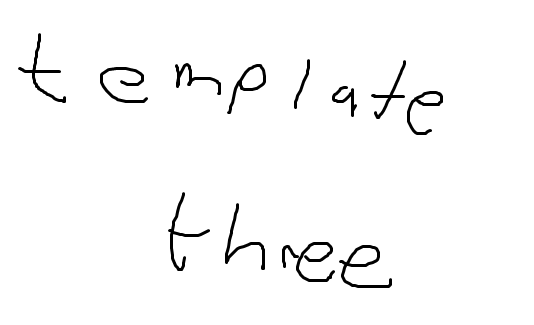 template
three